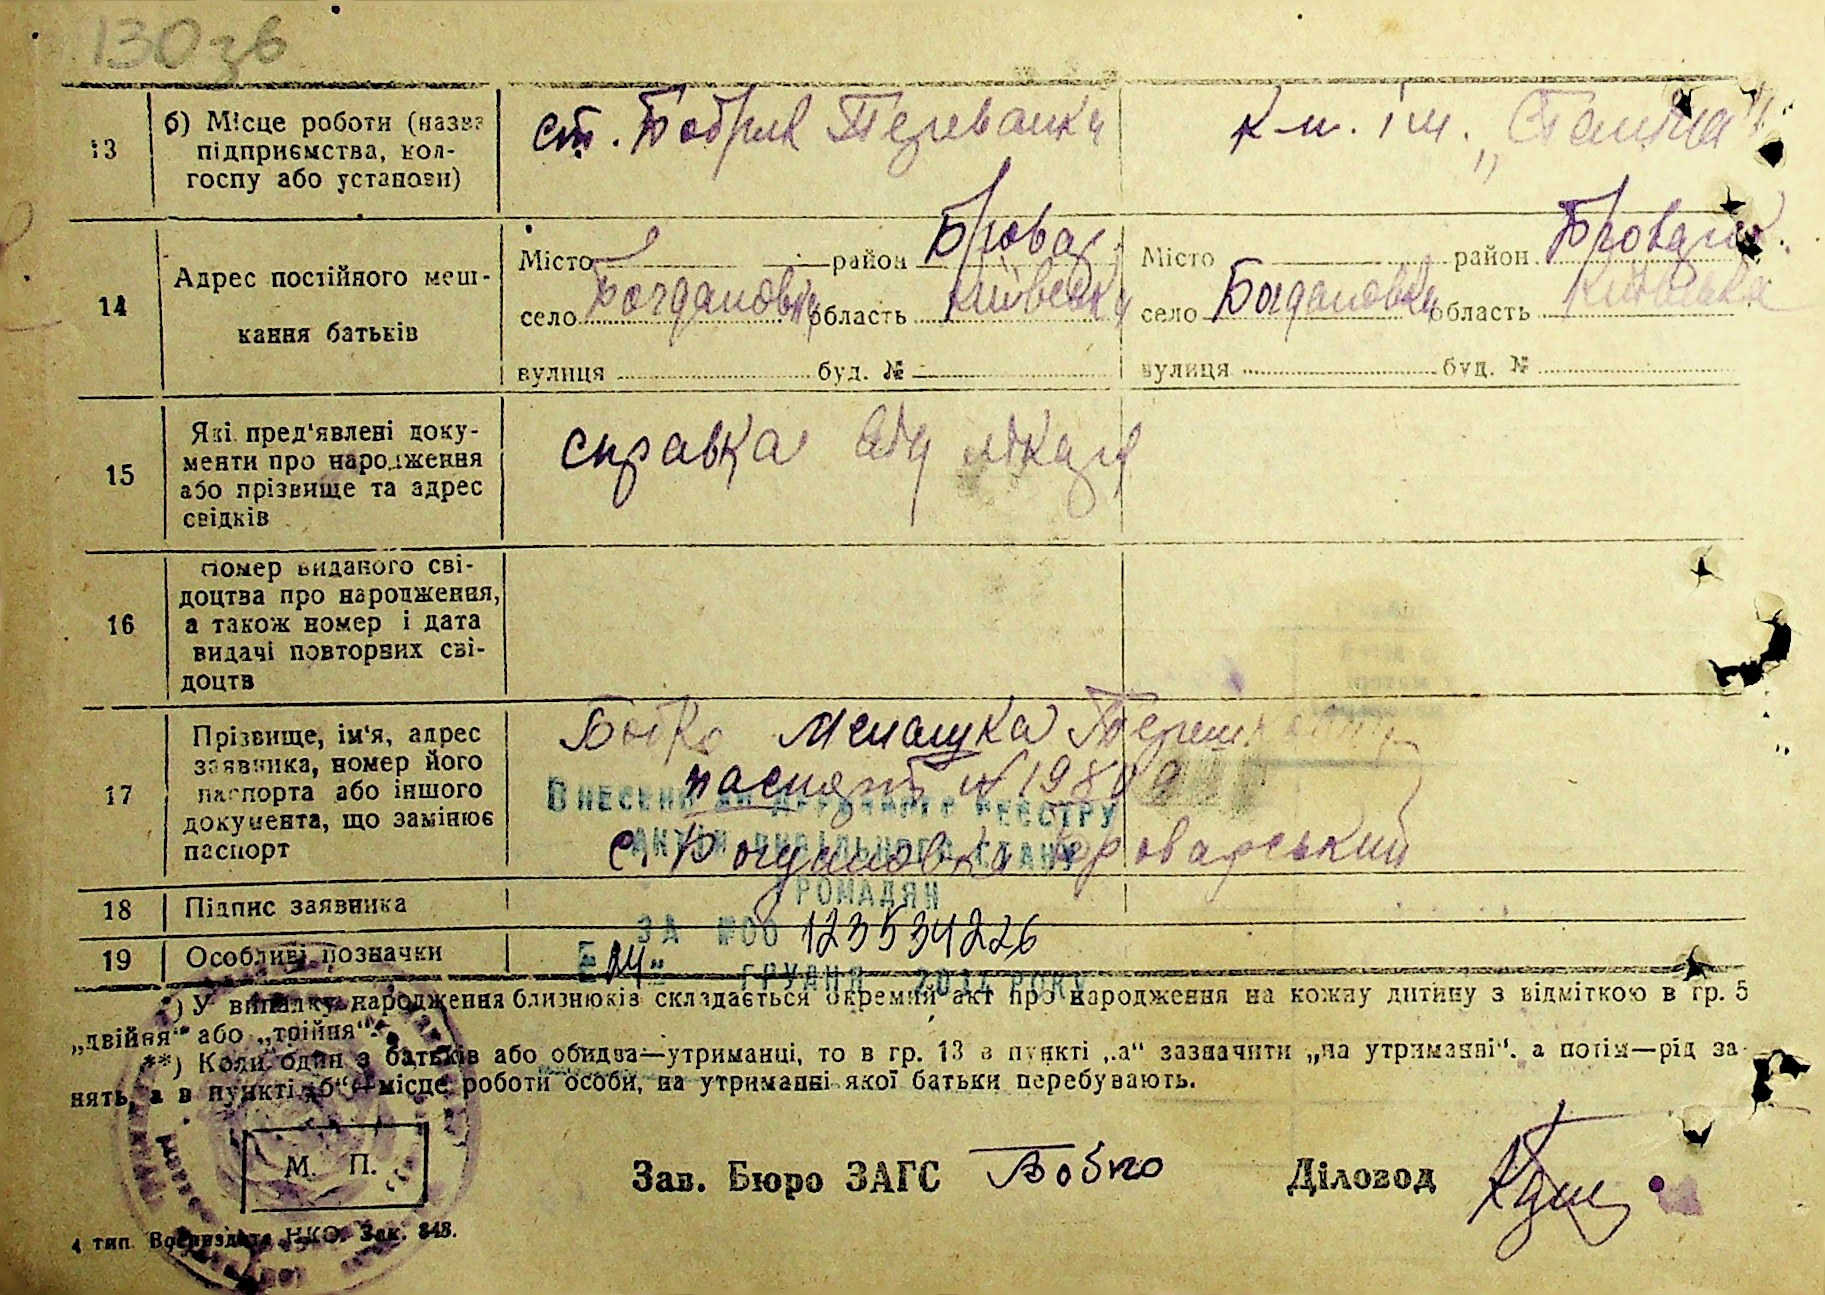 130 зв
13 б) Місце роботи (назва підприємства, колгоспу або установи) ст. Бобрик к-п. ім. „Сталіна"
14 Адрес постійного мешкання батьків
Місто район Бровар. Місто район Броварс.
село Богдановка область Київська село Богдановка область Київська
вулиця буд. № вулиця буд. №
15 Які пред'явлені документи про народження або прізвище та адрес свідків справка від лікаря
16 Номер виданого свідоцтва про народження, а також номер і дата видачі повторних свідоцтв
17 Прізвище, ім'я, адрес заявника, номер його паспорта або іншого документа, що замінює паспорт
паспорт №
с. Богдановка Броварський
Внесено до Державного реєстру
актів цивільного стану
громадян
18 Підпис заявника
за №00 123534226
19 Особливі позначки
грудня 2014 року
*) У випадку народження близнюків складається окремий акт про народження на кожну дитину з відміткою в гр. 5
„двійня" або „трійня".
**) Коли один з батьків або обидва—утриманці, то в гр. 13 в пункті „а" зазначити „на утриманні", а потім—рід за-
нять, а в пункті „б"—місце роботи особи, на утриманні якої батьки перебувають.
М. П.
Зав. Бюро ЗАГС Діловод
4 тип. Воєниздата НКО. Зак. 348.